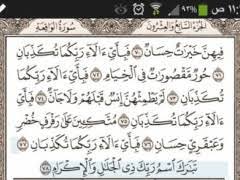 ٩٣%
الجُزْءُ السَّابِعُ وَالعِشْرُونَ سُورَةُ الوَاقِعَة
فِيهِنَّ خَيْرَٰتٌ حِسَانٌ ٧٠ فَبِأَيِّ ءَالَآءِ رَبِّكُمَا تُكَذِّبَانِ
٧١ حُورٌ مَّقْصُورَٰتٌ فِي ٱلْخِيَامِ ٧٢ فَبِأَيِّ ءَالَآءِ رَبِّكُمَا
تُكَذِّبَانِ ٧٣ لَمْ يَطْمِثْهُنَّ إِنسٌ قَبْلَهُمْ وَلَا جَآنٌّ ٧٤ فَبِأَيِّ
ءَالَآءِ رَبِّكُمَا تُكَذِّبَانِ ٧٥ مُتَّكِـِٔينَ عَلَىٰ رَفْرَفٍ خُضْرٍ
وَعَبْقَرِيٍّ حِسَانٍ ٧٦ فَبِأَيِّ ءَالَآءِ رَبِّكُمَا تُكَذِّبَانِ ٧٧
تَبَٰرَكَ ٱسْمُ رَبِّكَ ذِي ٱلْجَلَٰلِ وَٱلْإِكْرَامِ ٧٨